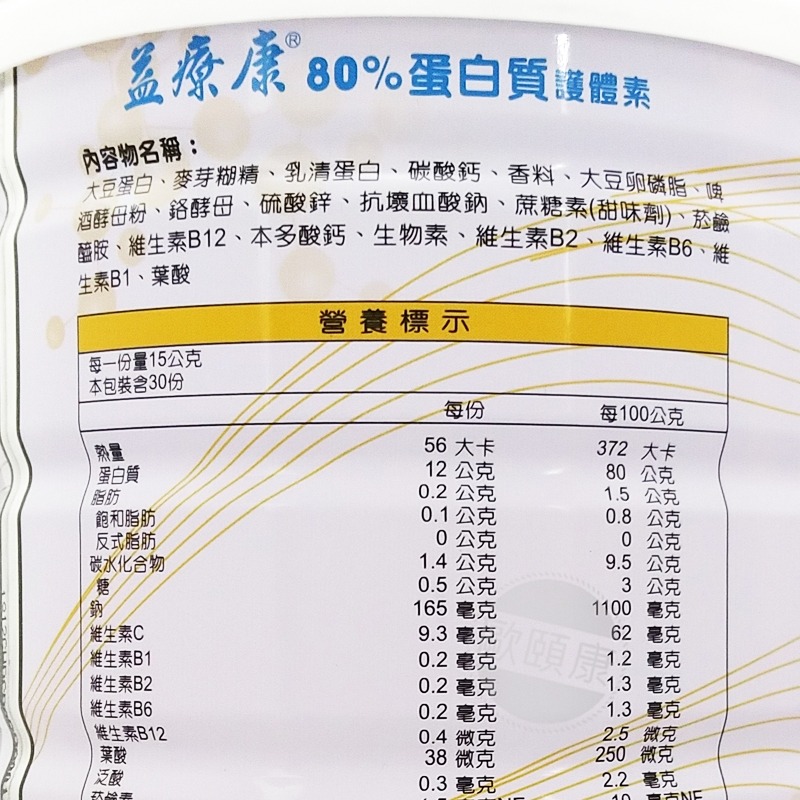 益療康® 80%蛋白質護體素
內容物名稱：
大豆蛋白、麥芽糊精、乳清蛋白、碳酸鈣、香料、大豆卵磷脂、啤
酒酵母粉、鉻酵母、硫酸鋅、抗壞血酸鈉、蔗糖素(甜味劑)、菸鹼
醯胺、維生素B12、本多酸鈣、生物素、維生素B2、維生素B6、維
生素B1、葉酸
營養標示
每一份量15公克
本包裝含30份
每份 每100公克
熱量 56 大卡 372 大卡
蛋白質 12 公克 80 公克
脂肪 0.2 公克 1.5 公克
飽和脂肪 0.1 公克 0.8 公克
反式脂肪 0 公克 0 公克
碳水化合物 1.4 公克 9.5 公克
糖 0.5 公克 3 公克
鈉 165 毫克 1100 毫克
維生素C 9.3 毫克 62 毫克
維生素B1 0.2 毫克 1.2 毫克
維生素B2 0.2 毫克 1.3 毫克
維生素B6 0.2 毫克 1.3 毫克
維生素B12 0.4 微克 2.5 微克
葉酸 38 微克 250 微克
泛酸 0.3 毫克 2.2 毫克
菸鹼素
歐頤康